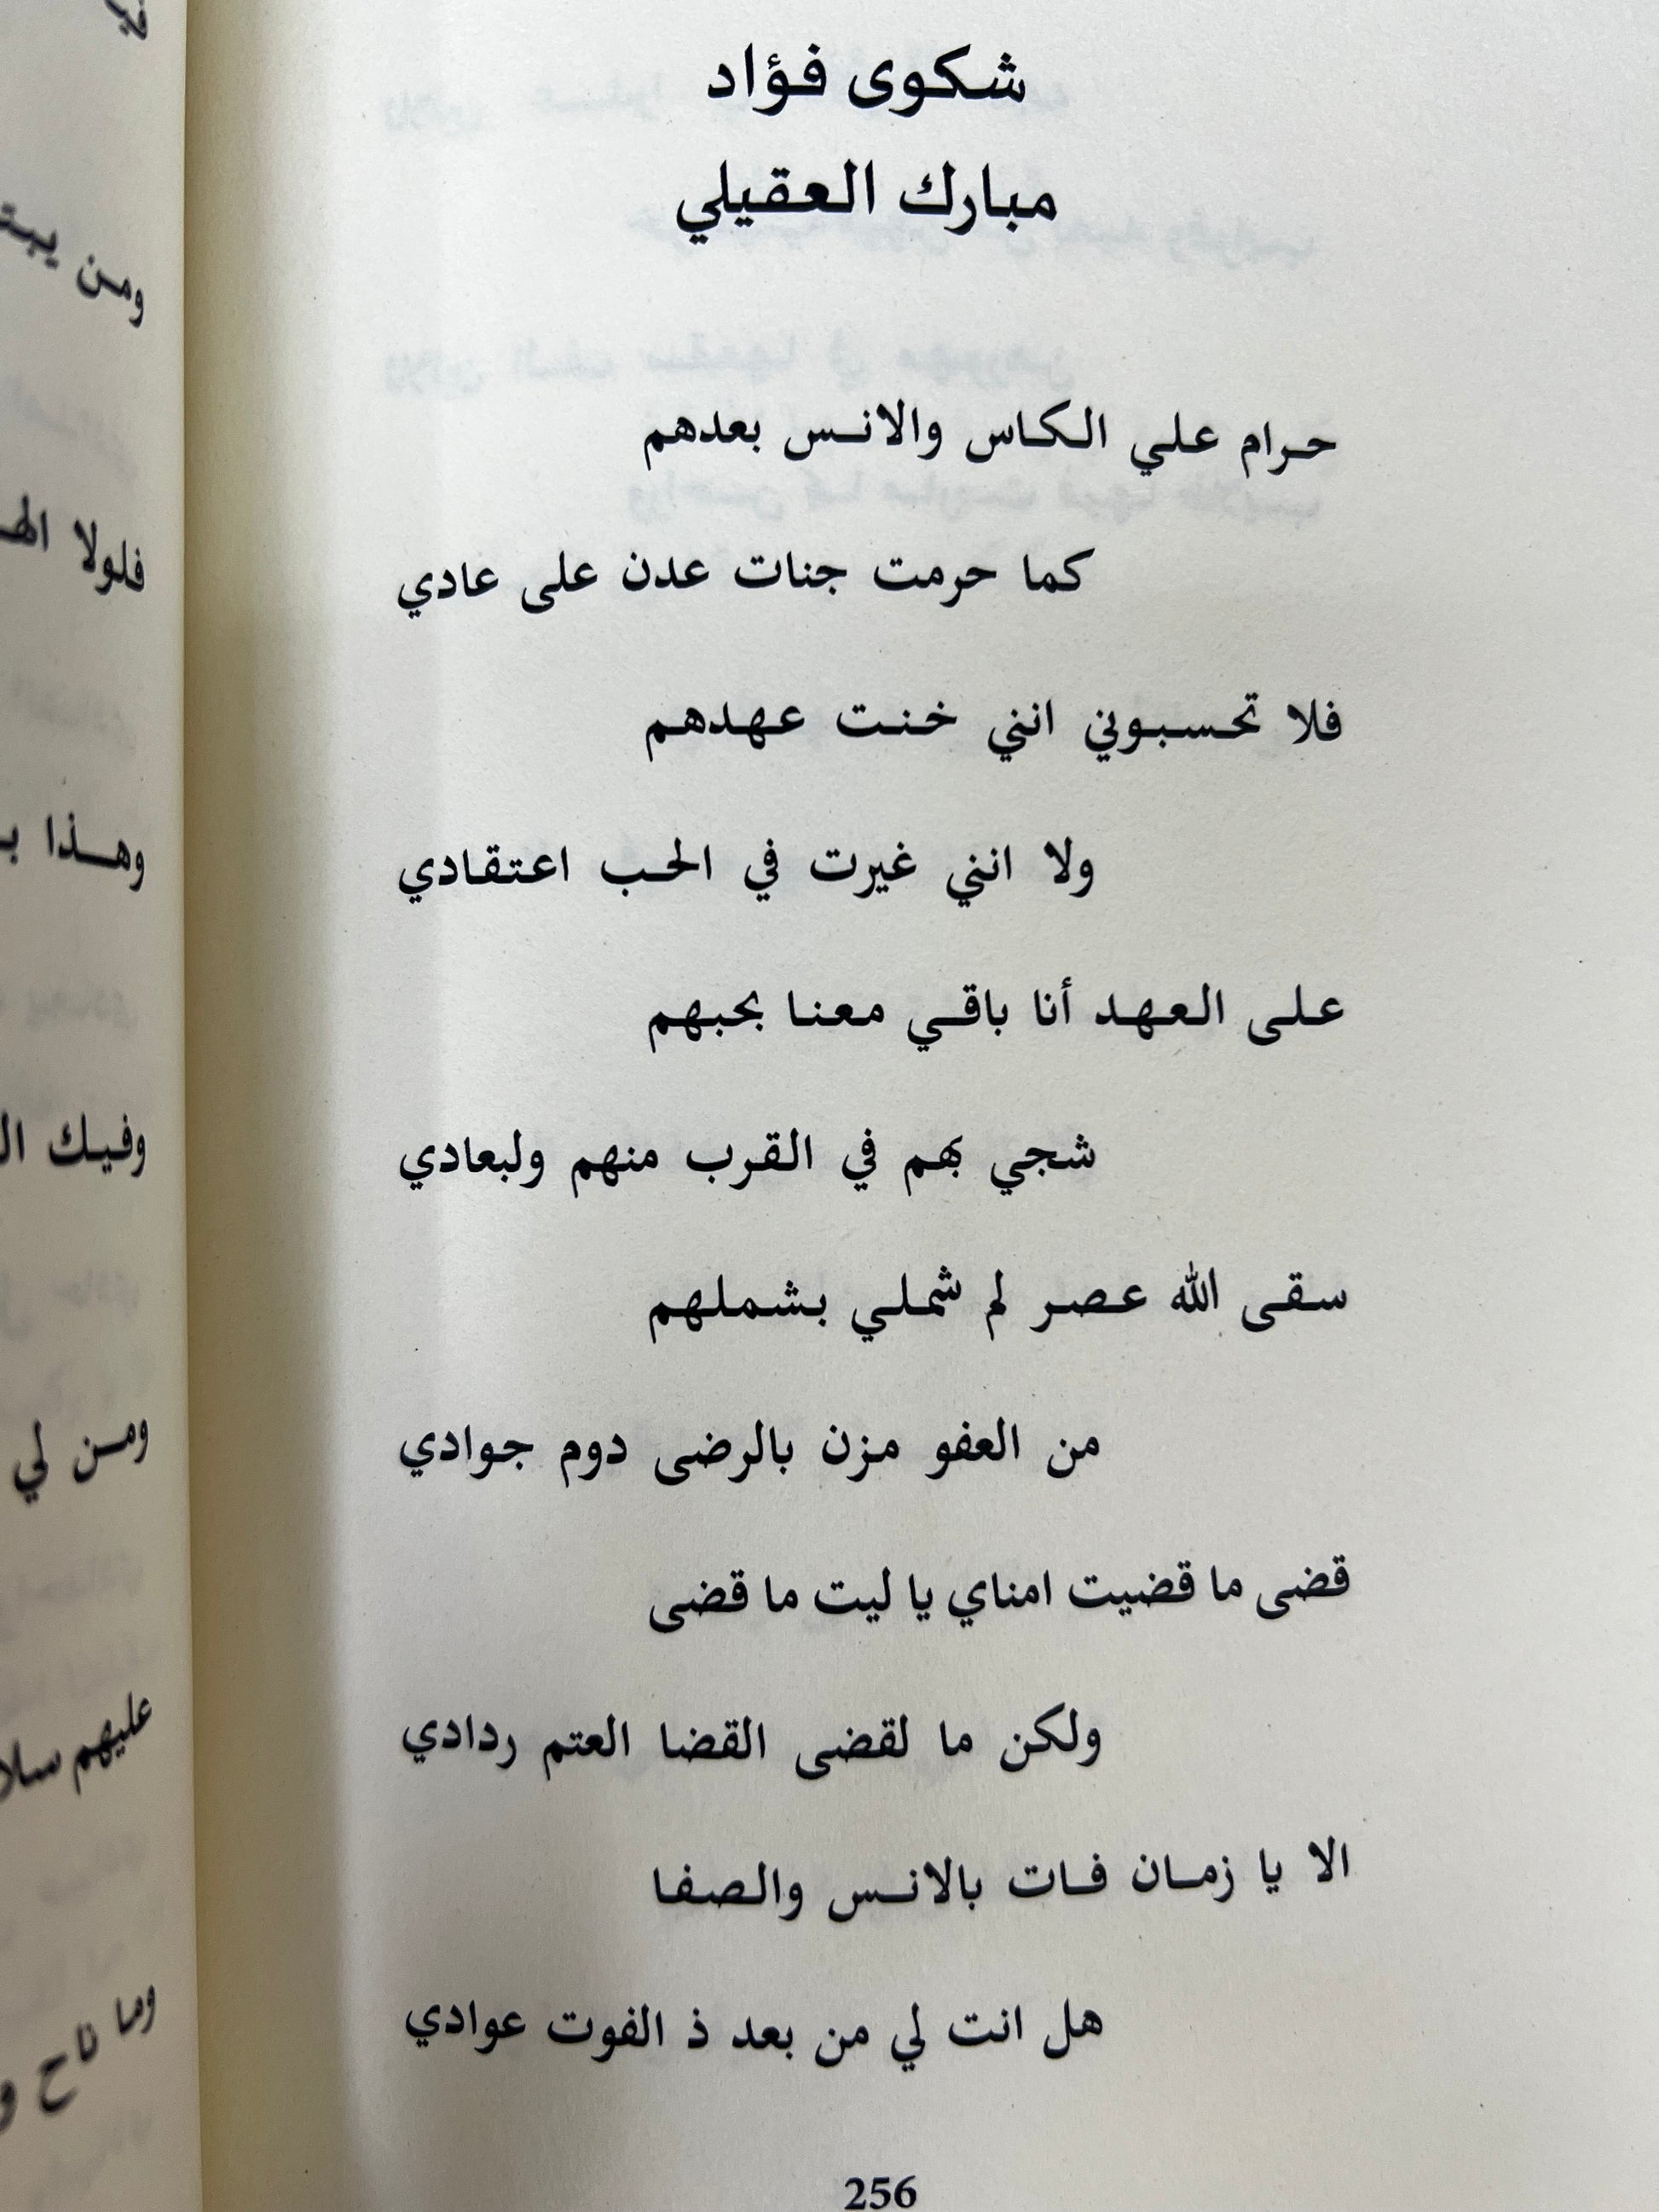 شكوى فؤاد
مبارك العقيلي
حرام علي الكاس والانس بعدهم
كما حرمت جنات عدن على عادي
فلا تحسبوني انني خنت عهدهم
ولا انني غيرت في الحب اعتقادي
على العهد أنا باقي معنا بحبهم
شجي بهم في القرب منهم ولبعادي
سقى الله عصر لم شملي بشملهم
من العفو مزن بالرضى دوم جوادي
قضى ما قضيت امناي يا ليت ما قضى
ولكن ما لقضى القضا العتم ردادي
الا يا زمان فات بالانس والصفا
هل انت لي من بعد ذ الفوت عوادي
256
ومن
فلولا
وهذا
وفيك
ومن لي
عليهم
وما ناح